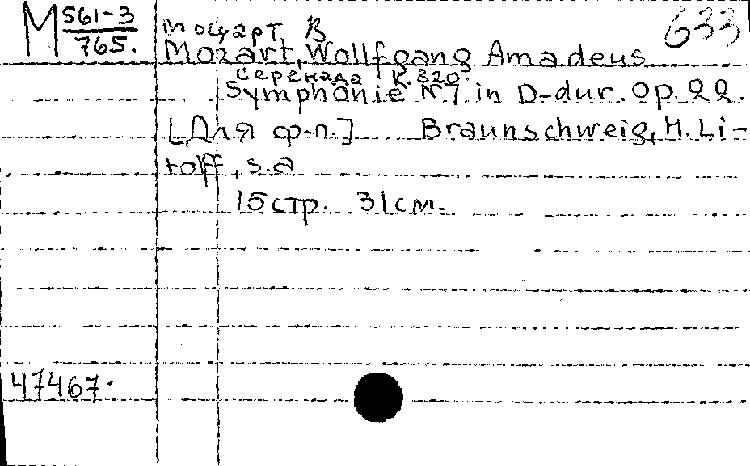 М 561-3
765.
633
Моцарт В
Mozart, Wollfgang Amadeus
Серенада К. 320
Symphonie N 7 in D-dur. Op. 22.
[Для ф-п.] Braunschweig, H. Li-
tolff, s.a
15 стр. 31 см.
47467.